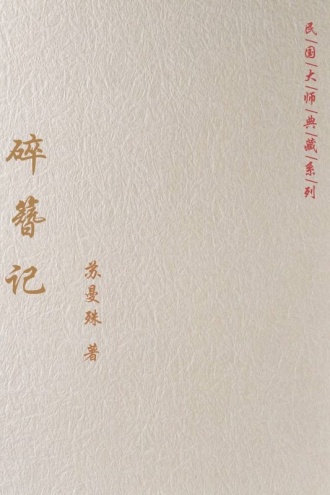 民|国|大|师|典|藏|系|列
碎簪记
苏曼殊 著